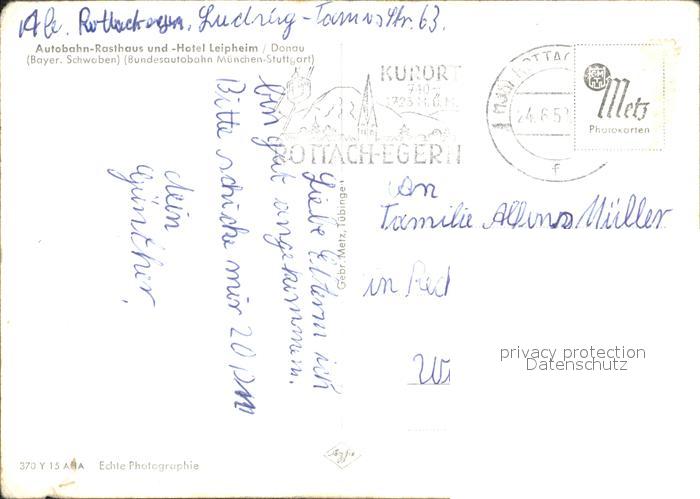 Abs. Rottach-egern, Ludwig-Tomas Str. 63.
Autobahn-Rasthaus und -Hotel Leipheim / Donau
(Bayer. Schwaben) (Bundesautobahn München-Stuttgart)
KURORT
740-
1723 M.Ü.M.
ROTTACH-EGERN
ROTTAC
24.8.5
f
Metz
Photokarten
Liebe Eltern ich
bin gut angekommen.
Bitte schicke mir 20 DM
dein
Günther.
Gebr. Metz, Tübingen
An
Familie Alfons Müller
in Red
Wi
privacy protection
Datenschutz
370 Y 15 AHA Echte Photographie
Agfa